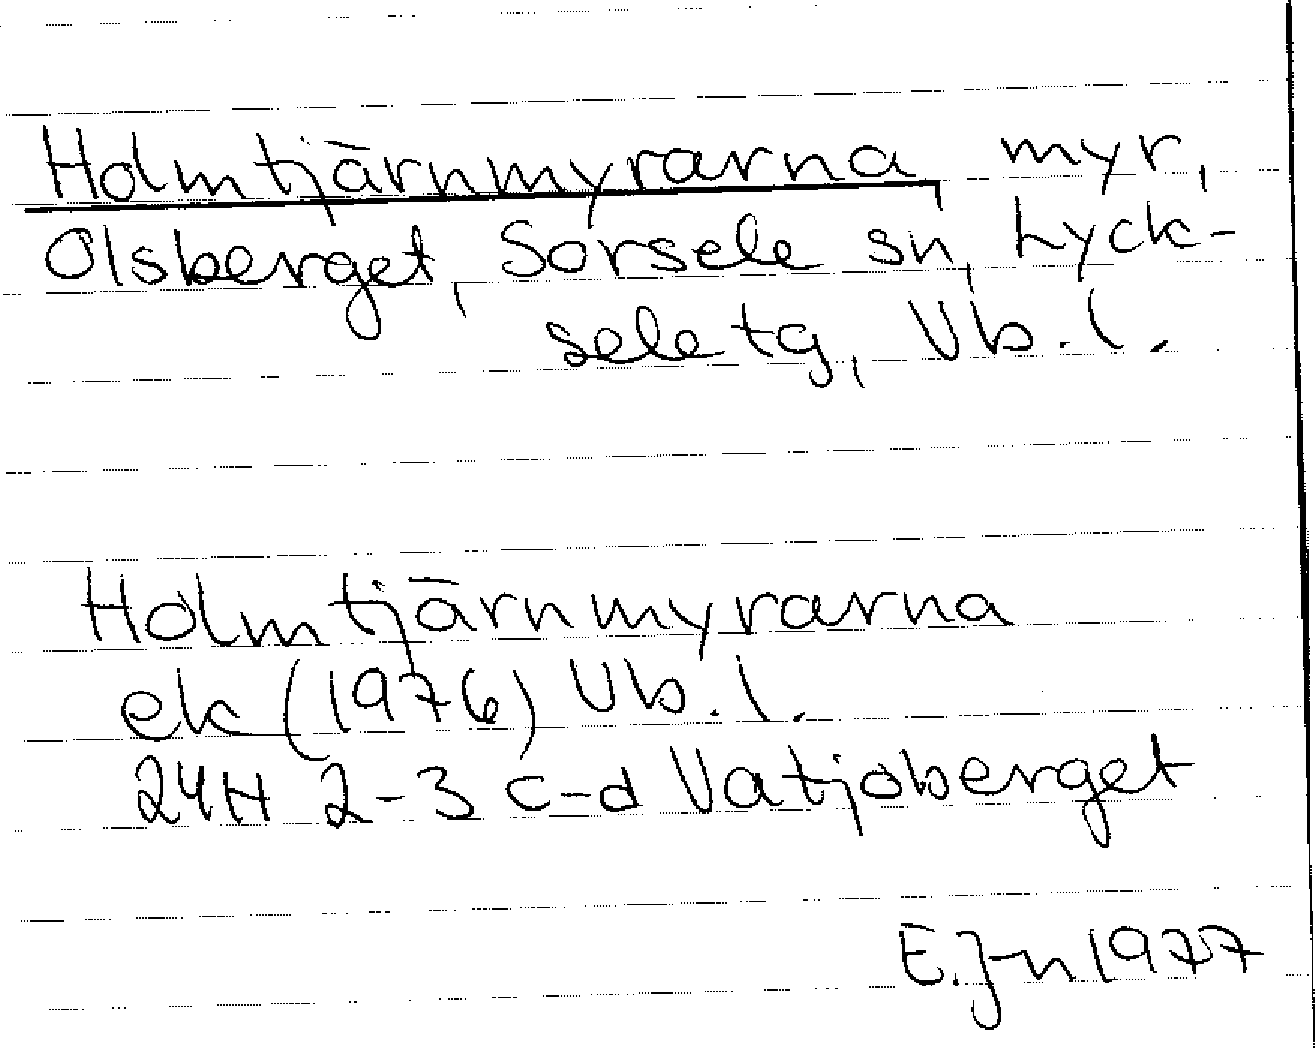 Holmtjärnmyrarna, myr,
Olsberget, Sorsele sn, Lyck-
sele tg, Vb. l.
Holmtjärnmyrarna
ek (1976) Vb. l.
24H 2-3 c-d Vatjoberget
E. J-n 1977